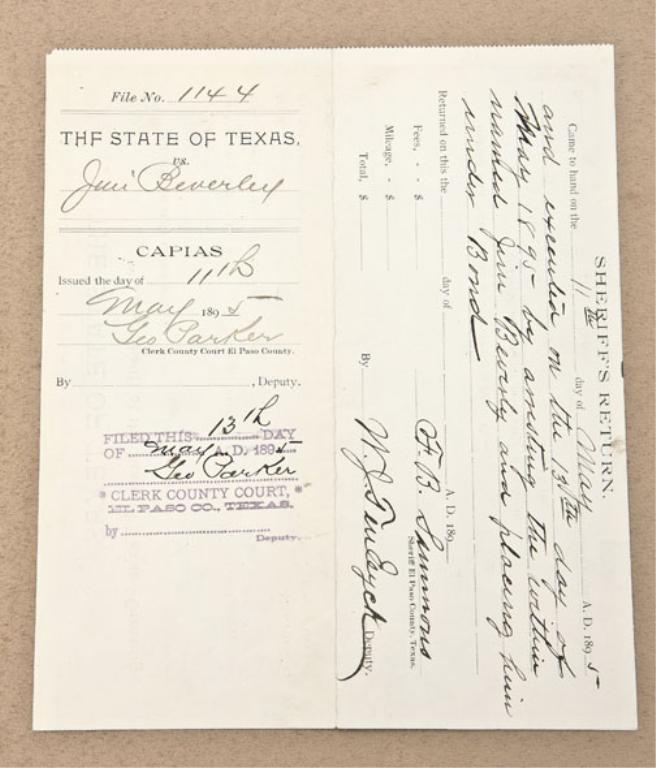 File No. 1144
THE STATE OF TEXAS,
vs.
Jim Beverley
CAPIAS
Issued the day of 11th
May 1895
Geo Parker
Clerk County Court El Paso County.
By , Deputy.
FILED THIS 13th DAY
OF May A. D. 1895
Geo Parker
* CLERK COUNTY COURT, *
EL PASO CO., TEXAS.
by
Deputy.
SHERIFF'S RETURN.
Came to hand on the 11th day of May A. D. 1895
and executed on the 13th day of
May 1895 by arresting the within
named Jim Beverly and placing him
under Bond
Returned on this the day of A. D. 189
Fees, - - $ F. B. Simmons
Sheriff El Paso County, Texas.
Mileage, - $
Total, $ By W. J. TenEyck Deputy.